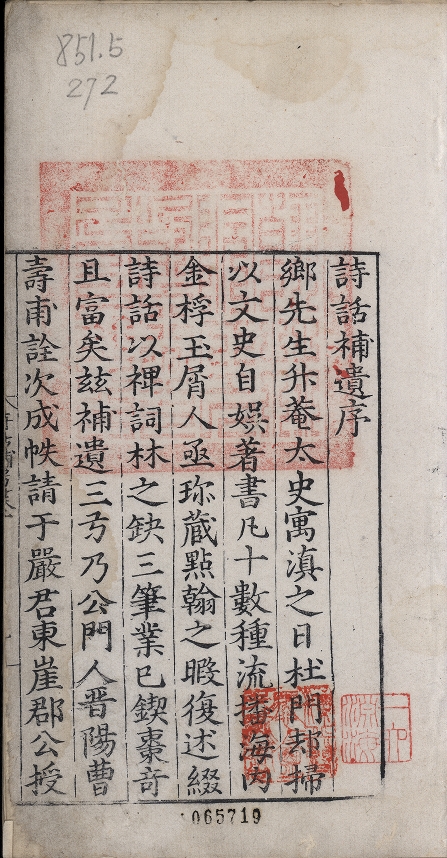 851.5
272
詩話補遺序
鄉先生升菴太史寓滇之日杜門却掃
以文史自娛著書凡十數種流播海內
金桴玉屑人亟珎藏點翰之暇復述綴
詩話以裨詞林之缺三筆業已鍥棗竒
且富矣兹補遺三㢧乃公門人晋陽曹
壽甫詮次成帙請于嚴君東崖郡公授
065719